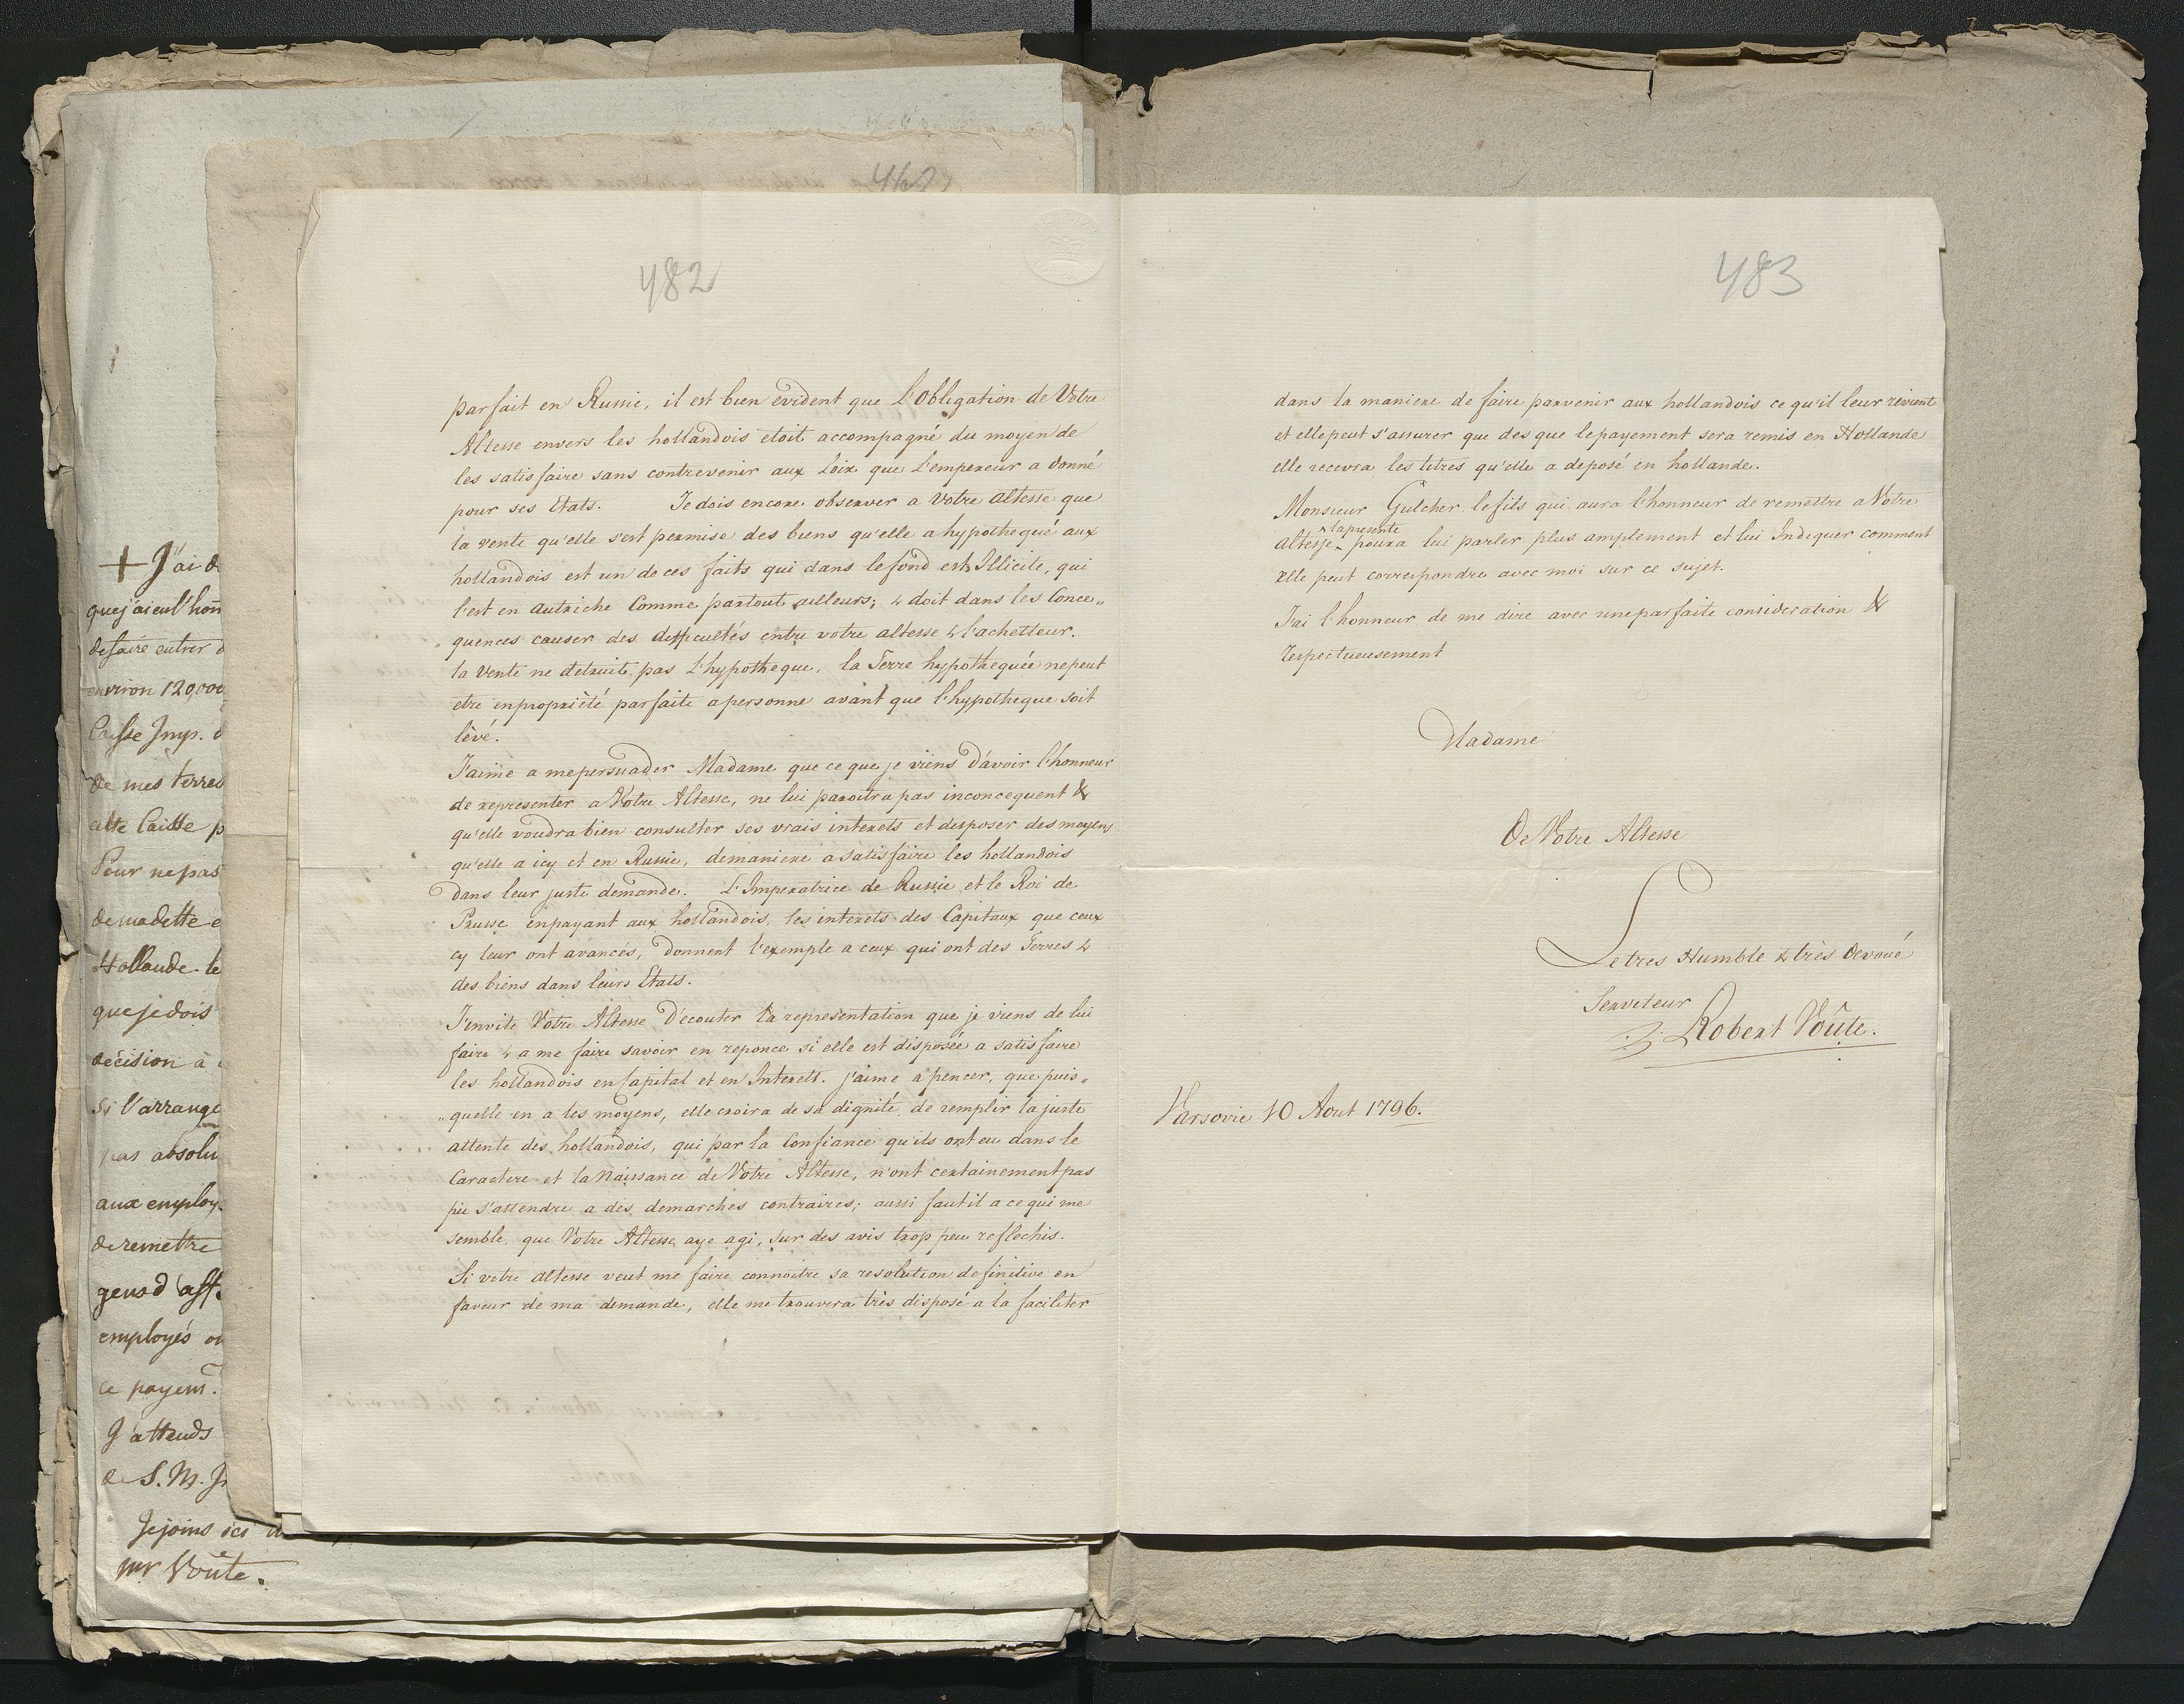 482
parfait en Russie, il est bien evident que L'Obligation de Votre
Altesse envers les hollandois etoit accompagné du moyen de
les satisfaire sans contrevenir aux Loix que L'empereur a donné
pour ses Etats. Je dois encore observer a Votre altesse que
la vente qu'elle s'est permise des biens qu'elle a hypothequé aux
hollandois est un de ces faits qui dans le fond est Illicite, qui
l'est en autriche Comme partout ailleurs; & doit dans les Conce„
„quences causer des difficultés entre votre altesse & l'achetteur.
la Vente ne detruit pas L'hypotheque, la Terre hypothequée ne peut
etre en propriété parfaite a personne avant que l'hypotheque soit
levé.
J'aime a me persuader Madame que ce que je viens d'avoir l'honneur
de representer a Votre Altesse, ne lui paroitra pas inconcequent &
qu'elle voudra bien consulter ses vrais interets et disposer des moyens
qu'elle a icy et en Russie, de maniere a satisfaire les hollandois
dans leur juste demande. L'Imperatrice de Russie et le Roi de
Prusse en payant aux hollandois les interets des Capitaux que ceux
cy leur ont avancés, donnent l'exemple a ceux qui ont des Terres &
des biens dans leurs Etats.
J'envite Votre Altesse D'ecouter la representation que je viens de lui
faire & a me faire savoir en reponce si elle est disposée a satisfaire
les hollandois en Capital et en Interett. j'aime a pencer, que puis„
„quelle en a les moyens, elle croira de sa dignité de remplir la juste
attente des hollandois, qui par la Confiance qu'ils ont eu dans le
Caractere et la Naissance de Votre Altesse, n'ont certainement pas
pu s'attendre a des demarches contraires; aussi faut il a ce qui me
semble, que Votre Altesse aye agi, sur des avis trop peu reflechis.
Si votre altesse veut me faire connoitre sa resolution definitive en
faveur de ma demande, elle me trouvera très disposé a la faciliter
483
dans la maniere de faire parvenir aux hollandois ce qu'il leur revient
et elle peut s'assurer que des que le payement sera remis en Hollande
elle recevra les titres qu'elle a deposé en hollande.
Monsieur Gulcher le fils qui aura l'honneur de remettre a Votre
la presente
altesse poura lui parler plus amplement et lui Indiquer comment
Elle peut correspondre avec moi sur ce sujet.
J'ai l'honneur de me dire avec une parfaite consideration &
respectueusement
Madame
De Votre Altesse
Le tres Humble & très devoué
Serviteur
Robert Voûte.
Varsovie 10 Aout 1796.
+ J'ai
que j'ai eu l'hon
de faire entrer
environ 120,000
Caisse Imp.
de mes terres
cette Caisse
Pour ne pas
de ma dette
Hollande
que je dois
décision à
si l'arrange
pas absolu
aux employ
de remettre
gens d'aff
employés
ce payem.
J'attends
S. M.
Je joins ici
mr Voûte.